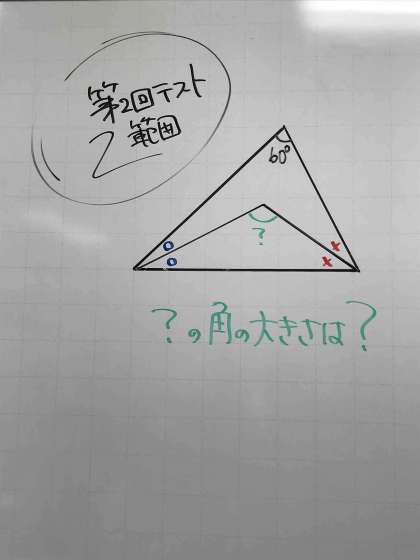 第2回テスト
範囲
60°
?
?の角の大きさは?